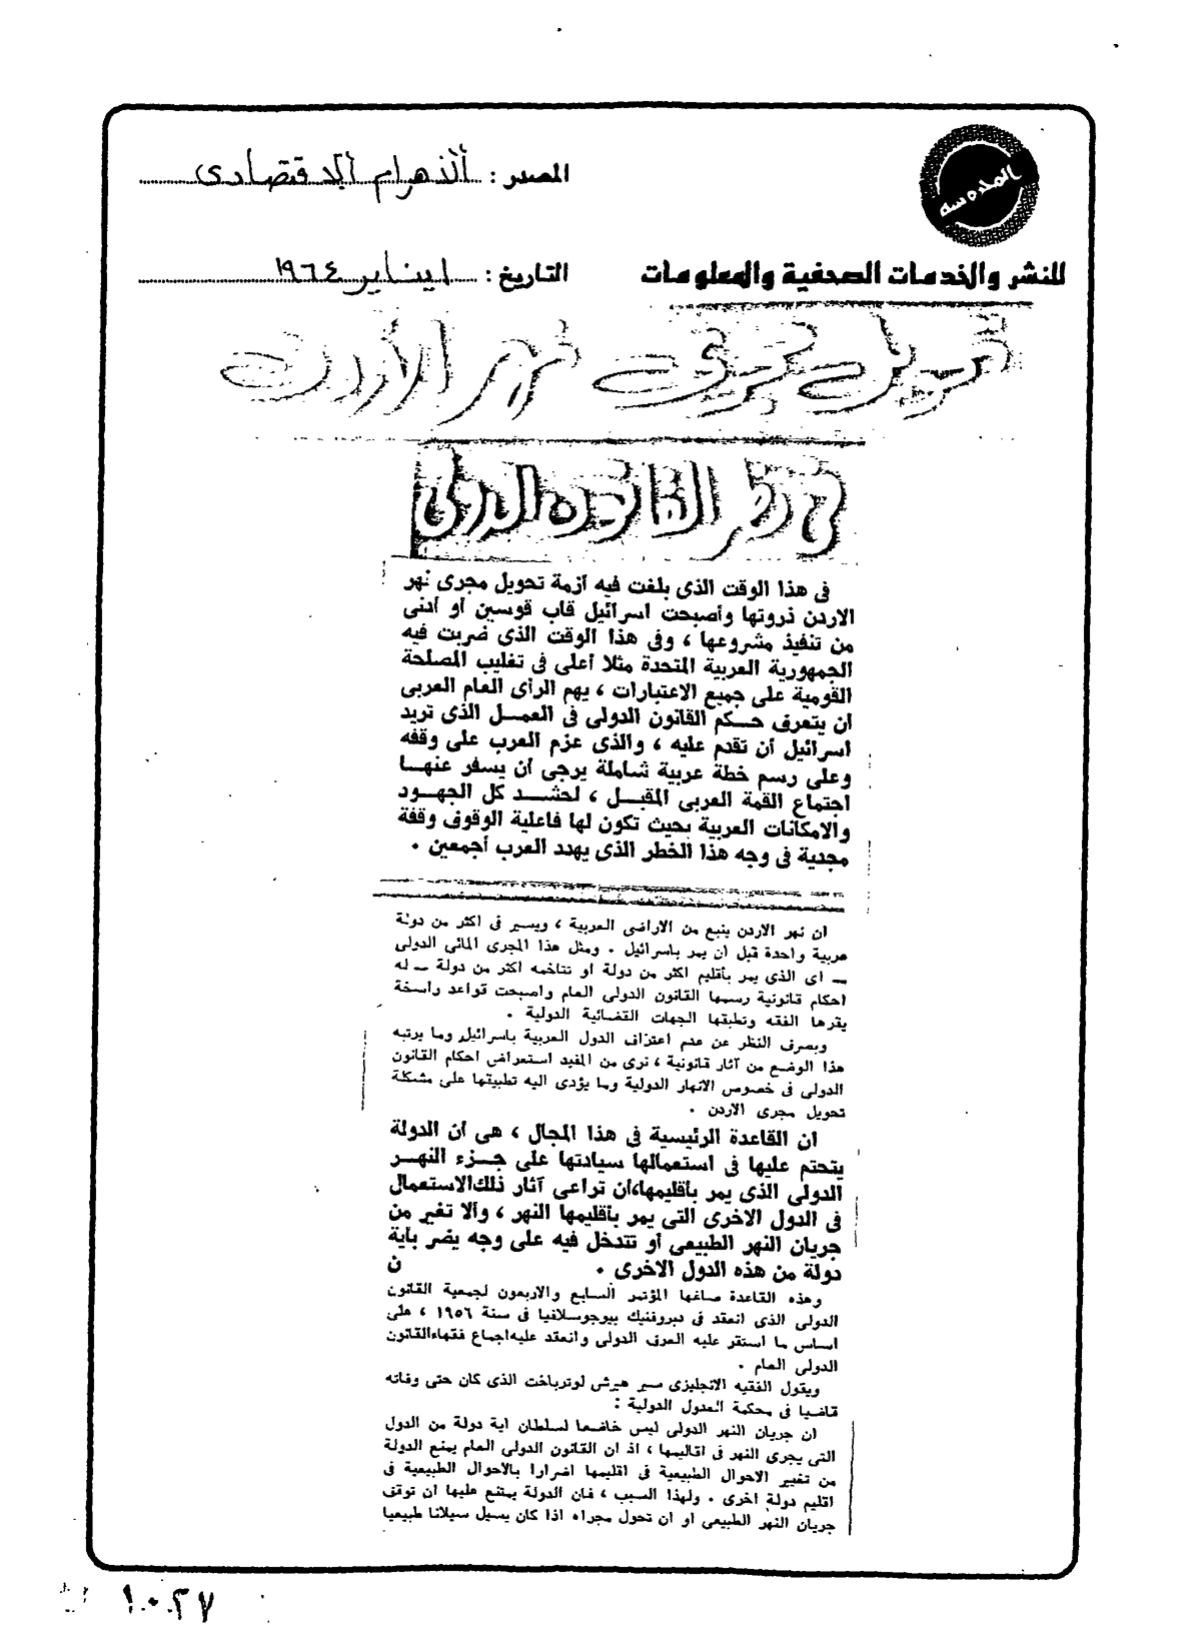 المصدر : الأهرام الاقتصادى
المدرسة
التاريخ : ١ يناير ١٩٦٤
للنشر والخدمات الصحفية والمعلومات
تحويل مجرى نهر الأردن
فى نظر القانون الدولى
فى هذا الوقت الذى بلغت فيه أزمة تحويل مجرى نهر
الاردن ذروتها وأصبحت اسرائيل قاب قوسين أو أدنى
من تنفيذ مشروعها ، وفى هذا الوقت الذى ضربت فيه
الجمهورية العربية المتحدة مثلا أعلى فى تغليب المصلحة
القومية على جميع الاعتبارات ، يهم الرأى العام العربى
أن يتعرف حكم القانون الدولى فى العمل الذى تريد
اسرائيل أن تقدم عليه ، والذى عزم العرب على وقفه
وعلى رسم خطة عربية شاملة يرجى أن يسفر عنها
اجتماع القمة العربى المقبل ، لحشد كل الجهود
والامكانات العربية بحيث تكون لها فاعلية الوقوف وقفة
مجدية فى وجه هذا الخطر الذى يهدد العرب أجمعين .
ان نهر الاردن ينبع من الاراضى العربية ، ويسير فى اكثر من دولة
عربية واحدة قبل ان يمر باسرائيل . ومثل هذا المجرى المائى الدولى
ــ اى الذى يمر بأقليم اكثر من دولة او تتاخمه اكثر من دولة ــ له
احكام قانونية رسمها القانون الدولى العام واصبحت قواعد راسخة
يقرها الفقه وتطبقها الجهات القضائية الدولية .
وبصرف النظر عن عدم اعتراف الدول العربية باسرائيل وما يرتبه
هذا الوضع من آثار قانونية ، نرى من المفيد استعراض احكام القانون
الدولى فى خصوص الانهار الدولية وما يؤدى اليه تطبيتها على مشكلة
تحويل مجرى الاردن .
ان القاعدة الرئيسية فى هذا المجال ، هى أن الدولة
يتحتم عليها فى استعمالها سيادتها على جزء النهر
الدولى الذى يمر بأقليمها،أن تراعى آثار ذلك الاستعمال
فى الدول الاخرى التى يمر بأقليمها النهر ، وألا تغير من
جريان النهر الطبيعى أو تتدخل فيه على وجه يضر بأية
دولة من هذه الدول الاخرى . ن
وهذه القاعدة صاغها المؤتمر السابع والاربعون لجمعية القانون
الدولى الذى انعقد فى دبروفنيك بيوجوسلافيا فى سنة ١٩٥٦ ، على
اساس ما استقر عليه العرف الدولى وانعقد عليه اجماع فقهاء القانون
الدولى العام .
ويقول الفقيه الانجليزى سير هيرش لوترباخت الذى كان حتى وفاته
قاضيا فى محكمة العدول الدولية :
ان جريان النهر الدولى ليس خاضعا لسلطان اية دولة من الدول
التى يجرى النهر فى اقاليمها ، اذ ان القانون الدولى العام يمنع الدولة
من تغيير الاحوال الطبيعية فى اقليمها اضرارا بالاحوال الطبيعية فى
اقليم دولة اخرى . ولهذا السبب ، فان الدولة يمتنع عليها ان توقف
جريان النهر الطبيعى او ان تحول مجراه اذا كان يسيل سيلانا طبيعيا
١٠٥٠٢٧